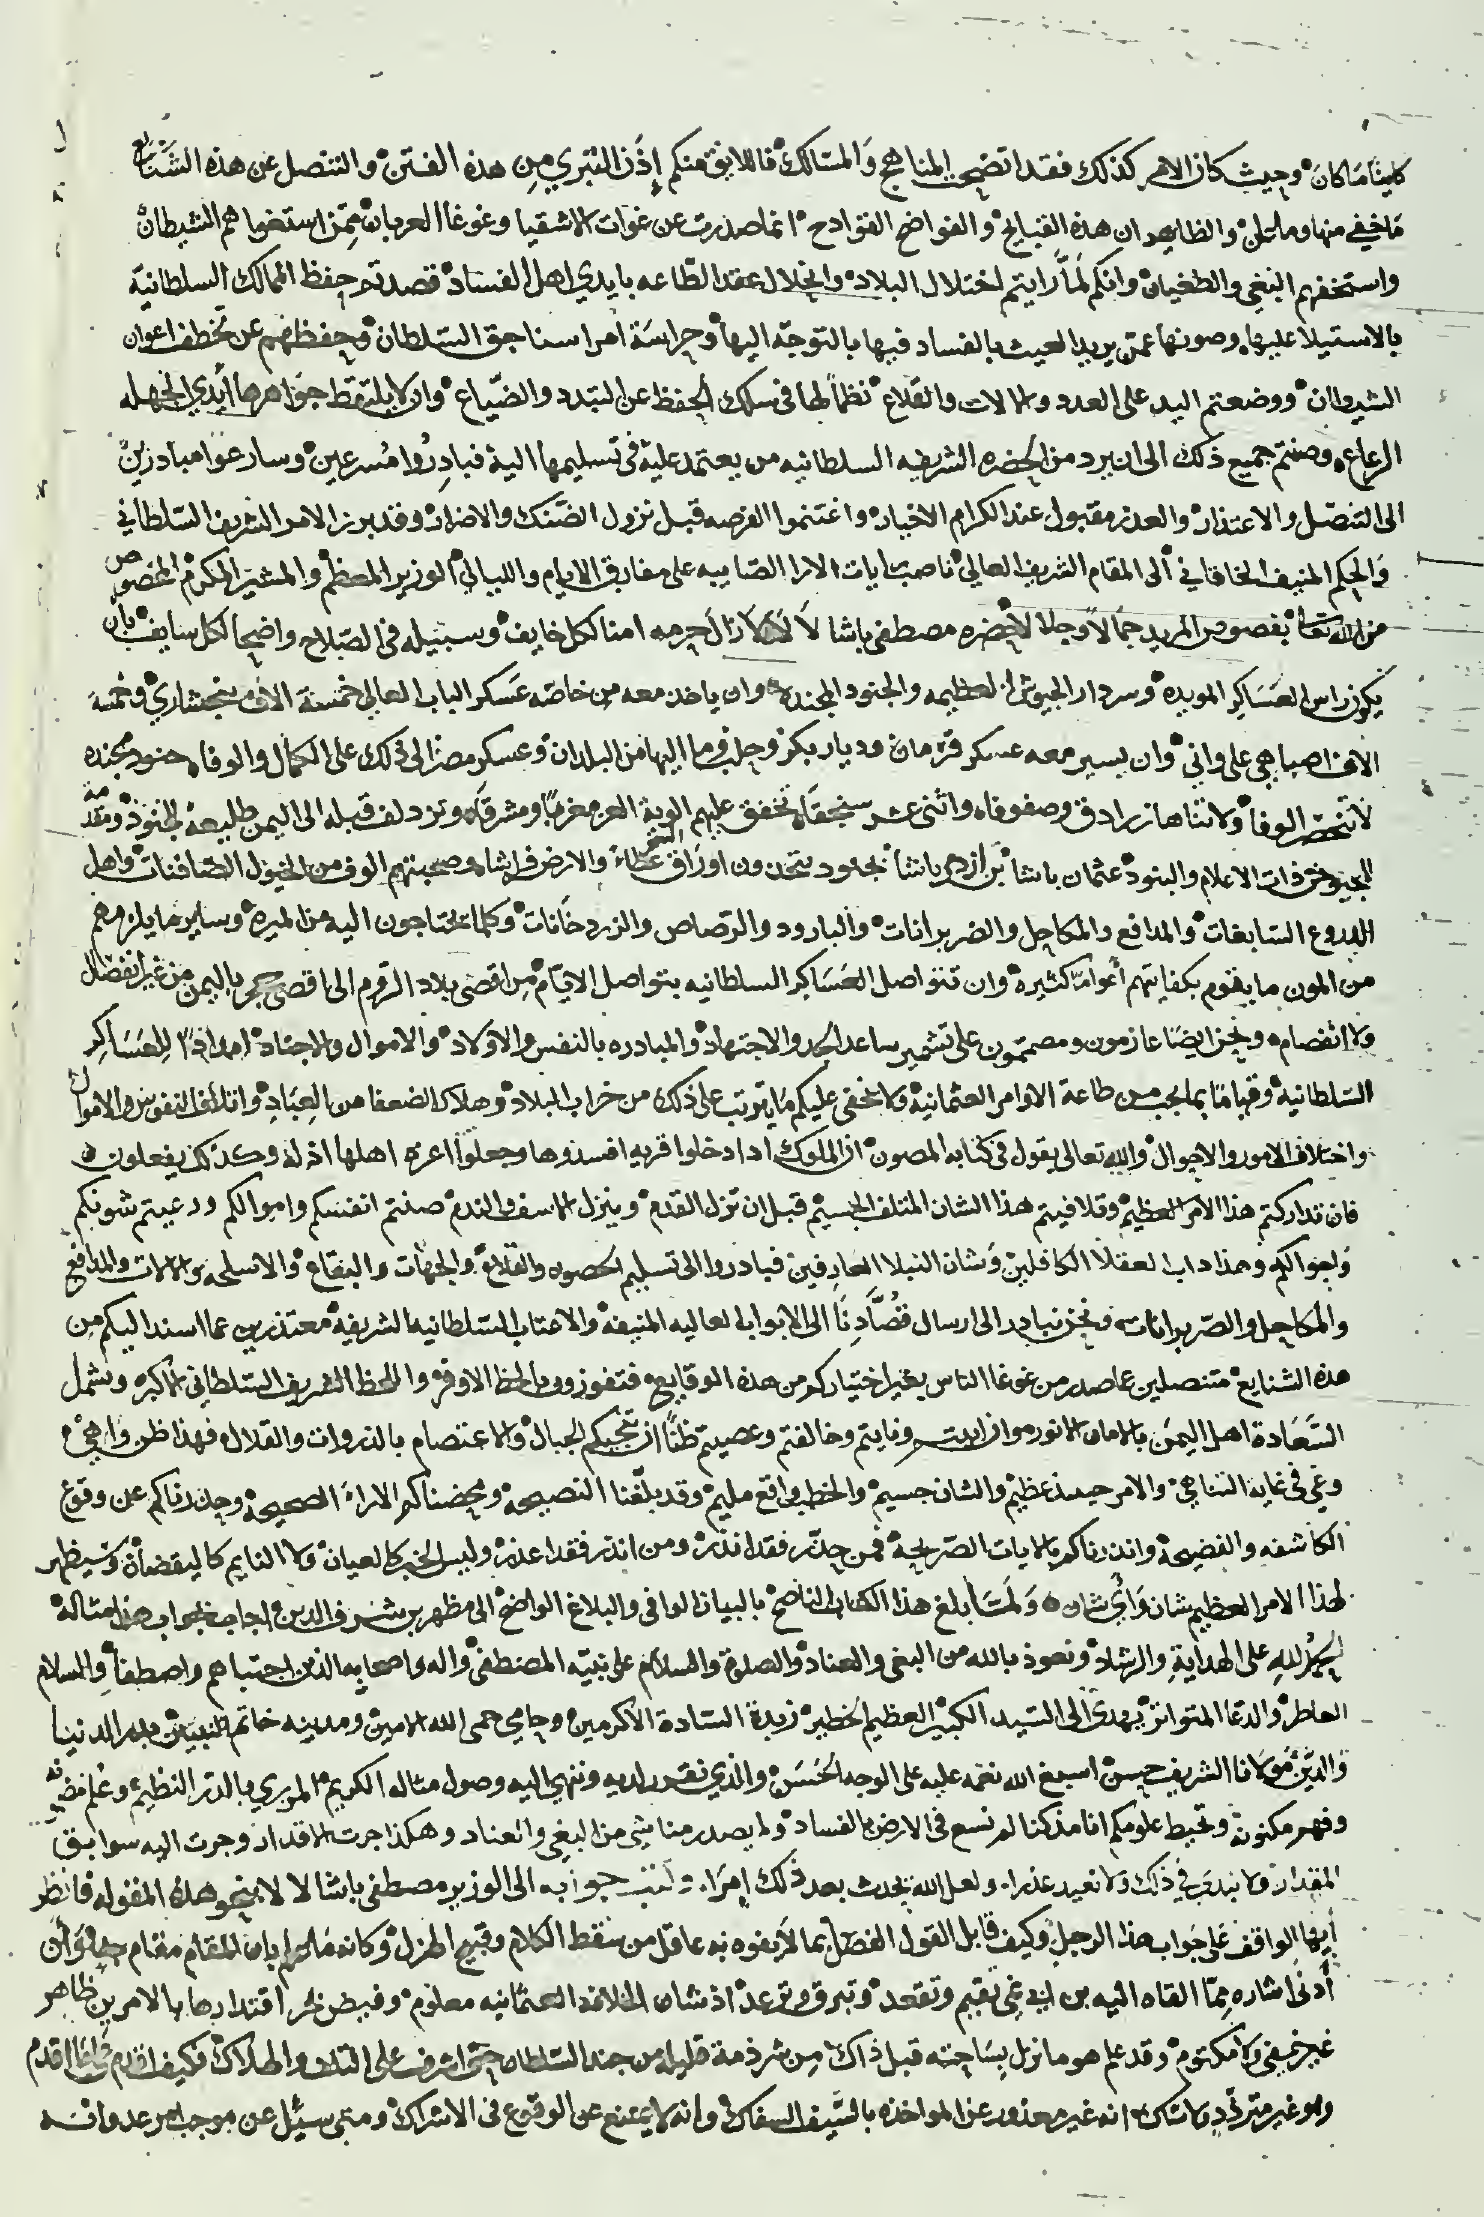 كاينا ما كان وحيث كان الامر كذلك فقد اتضحت المناهج والمسالك فاللايق منكم إذن التبري من هذه الفتن والتنصل عن هذه الشنايع
ما خفي منها وما علن والظاهر ان هذه القبايح والفواضح الفوادح انما صدرت عن غوات الاشقيا وغوغا العربان ممن استغواهم الشيطان
واستخفهم البغي والطغيان وانكم لما رايتم اختلال البلاد وانحلال عقد الطاعه بايدي اهل الفساد قصدتم حفظ الممالك السلطانية
بالاستيلا عليها وصونها عمن يريد العيث بالفساد فيها بالتوجه اليها وحراسة امرا سناجق السلطان وحفظهم عن تخطف اعوان
الشيطان ووضعتم اليد على العدد والالات والقلاع نظما لها في سلك الحفظ عن التبدد والضياع وان لا يلتقط جواهرها أيدي الجهله
الرعاع وصنتم جميع ذلك الى ان يرد من الحضره الشريفه السلطانيه من يعتمد عليه في تسليمها اليه فبادروا مسرعين وسارعوا مبادرين
الى التنصل والاعتذار والعذر مقبول عند الكرام الاخيار واغتنموا الفرصه قبل نزول الضنك والاضرار وقد برز الامر الشريف السلطاني
والحكم المنيف الخاقاني الى المقام الشريف العالي ناصب رايات الارا الصايبه على مفارق الايام والليالي الوزير المعظم والمشير المكرم المخصوص
من الله تعالى بقصوى المزيد جمالا وجلالا حضره مصطفى باشا لا لا لا زال حرمه امنا لكل خايف وسبيله في الصلاح واضحا لكل سايف بان
يكون راس العساكر المويده وسردار الجيوش العظيمه والجنود المجنده وان ياخذ معه من خاصه عسكر الباب العالي خمسة الاف ينجشاري وخمسة
الاف اصباهي علواني وان يسير معه عسكر قرمان وديار بكر وحلب وما اليها من البلدان وعسكر مصر الى ذلك على الكمال والوفا جنود مجنده
لا تنحصر الوفا ولا تتناها زرادق وصفوفا واثنى عشر سنجقا تخفق عليهم الوية العز مغربا ومشرقا وتزدلف قبله الى اليمن طليعة الجنود ومقدمة
الجيوش ذات الاعلام والبنود عثمان باشا بن ازدمر باشا بجنود يتخذون اوراق الشجر غطاء والارض فراشا وصحبتهم الوف من الخيول الصافنات واهل
الدروع السابغات والمدافع والمكاحل والضربزانات والبارود والرصاص والزردخانات وكلما تحتاجون اليه من الميره وساير ما يلزمهم
من المون ما يقوم بكفايتهم أعواما كثيره وان تتواصل العساكر السلطانيه بتواصل الايام من اقصى بلاد الروم الى اقصى حجر باليمن من غير انفصال
ولا انفصام ونحن ايضا عازمون ومصممون على تشمير ساعد الجد والاجتهاد والمبادره بالنفس والاولاد والاموال والاجناد امدادا للعساكر
السلطانية وقياما بما يجب من طاعة الاوامر العثمانية ولا يخفى عليكم ما يترتب على ذلك من خراب البلاد وهلاك الضعفا من العباد واتلاف النفوس والاموال
واختلاف الامور والاحوال والله تعالى يقول في كتابه المصون ان الملوك اذا دخلوا قريه افسدوها وجعلوا اعزه اهلها اذله وكذلك يفعلون
فان تداركتم هذا الامر العظيم وتلافيتم هذا الشان المتلف الجسيم قبل ان تزل القدم وينزل الاسف والندم صنتم انفسكم واموالكم ورعيتم شونكم
واحوالكم وهذا داب العقلا الكافلين وشان النبلا العارفين فبادروا الى تسليم الحصون والقلاع والجهات والبقاع والاسلحه والالات والمدافع
والمكاحل والضربزانات ونحن نبادر الى ارسال قصادنا الى الابواب العاليه المنيفه والاعتاب السلطانيه الشريفه معتذرين عما اسند اليكم من
هذه الشنايع متنصلين عما صدر من غوغا الناس بغير اختياركم من هذه الوقايع فتفوزون بالحظ الاوفر واللحظ الشريف السلطاني الاكبر وتشمل
السعادة اهل اليمن بالامان الانور وان ابيتم ونايتم وخالفتم وعصيتم ظنا ان تحجبكم الجبال والاعتصام بالذروات والقلال فهذا ظن واهي
وغي في غاية التناهي والامر حينئذ عظيم والشان جسيم والخطب واقع مليم وقد بلغنا النصيحه ومحضناكم الاراء الصحيحة وحذرناكم عن وقوع
الكاشفه والفضيحة وانذرناكم بالايات الصريحة فمن حذر فقد انذر ومن انذر فقد اعذر وليس الخبر كالعيان ولا النايم كاليقضان وسيظهر
لهذا الامر العظيم شان وأي شان ولما بلغ هذا الكتاب الناصح بالبيان الوافي والبلاغ الواضح الى مظهر بن شرف الدين اجاب بجواب هذا مثاله
الحمد لله على الهداية والرشاد ونعوذ بالله من البغي والعناد والصلوة والسلام على نبيه المصطفى واله واصحابه الذين اجتباهم واصطفا والسلام
العاطر والدعا المتواتر يهدى الى السيد الكبير العظيم الخطير زبدة السادة الاكرمين وحامي حمى الله الامين ومدينه خاتم النبيين بدر الدنيا
والدين مولانا الشريف حسن اسبغ الله نعمه عليه على الوجه الحسن والذي نقرر لديه وننهي اليه وصول مثاله الكريم المزري بالدر النظيم وعلم مضمونه
وفهم مكنونه وتحيط علومكم انا مذ كنا لم نسع في الارض بالفساد ولم يصدر منا شي من البغي والعناد وهكذا جرت الاقدار وجرت اليه سوابق
المقدار ولا نبدي في ذلك ولا نعيد عذرا ولعل الله يحدث بعد ذلك امرا وكتب جوابه الى الوزير مصطفى باشا لا لا بنحو هذه المقوله فانظر
أيها الواقف على جواب هذا الرجل وكيف قابل القول الفصل بما لا يفوه به عاقل من سقط الكلام وقبيح الهزل وكانه ما علم بان المقام مقام وان
أدنى اشاره مما القاه اليه بن ابي نمي تقيم وتقعد وتبرق وترعد اذ شان الخلافه العثمانيه معلوم وفيض بحر اقتدارها بالامرين ظاهر
غير خفي ولا مكتوم وقد علم هو ما نزل بساحته قبل ذاك من شرذمة قليله من جند السلطان حتى اشرف على التلف والهلاك فكيف اقدم
وهو غير متردد ولا شاك انه غير معذور عن المواخذه بالسيف السفاك وانه لا يمتنع عن الوقوع في الاشراك ومتى سئل عن موجب عدوانه